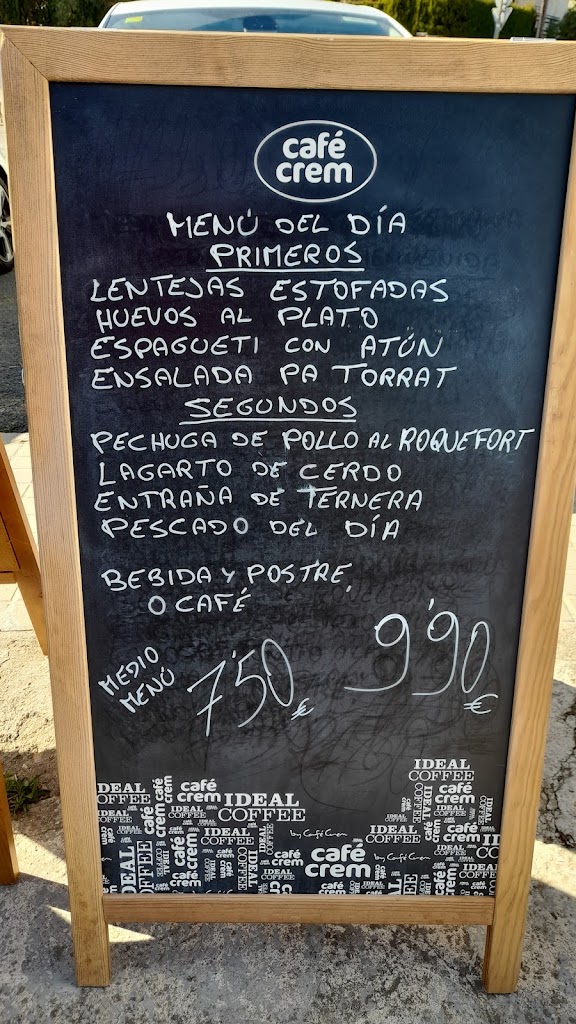 café
crem
MENÚ DEL DÍA
PRIMEROS
LENTEJAS ESTOFADAS
HUEVOS AL PLATO
ESPAGUETI CON ATÚN
ENSALADA PA TORRAT
SEGUNDOS
PECHUGA DE POLLO AL ROQUEFORT
LAGARTO DE CERDO
ENTRAÑA DE TERNERA
PESCADO DEL DÍA
BEBIDA Y POSTRE,
O CAFÉ
MEDIO
MENÚ
7'50€
9'90€
IDEAL
COFFEE
café
crem
IDEAL
COFFEE
café
crem
by Café Crem
café
crem
IDEAL
COFFEE
by Café Crem